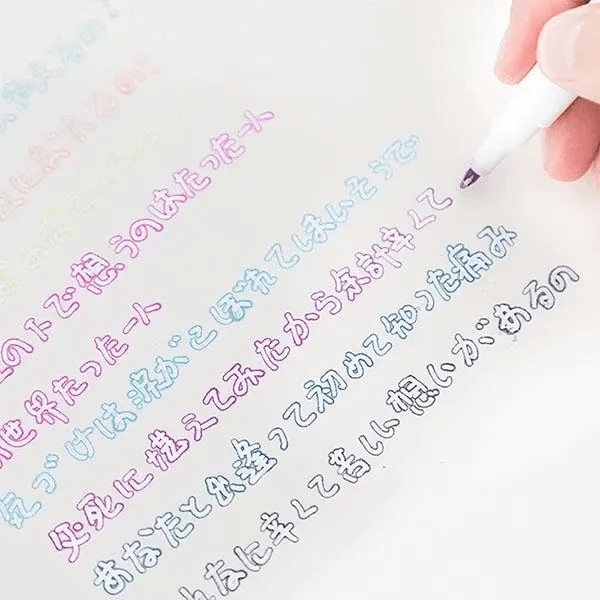 えるの！
るの！
の下で想うのはたった一人
世界たった一人
気づけは涙がこぼれてしまいそうで
必死に堪えてみたから余計辛くて
あなたと出逢って初めて知った痛み
んなに辛くて苦しい想いがあるの